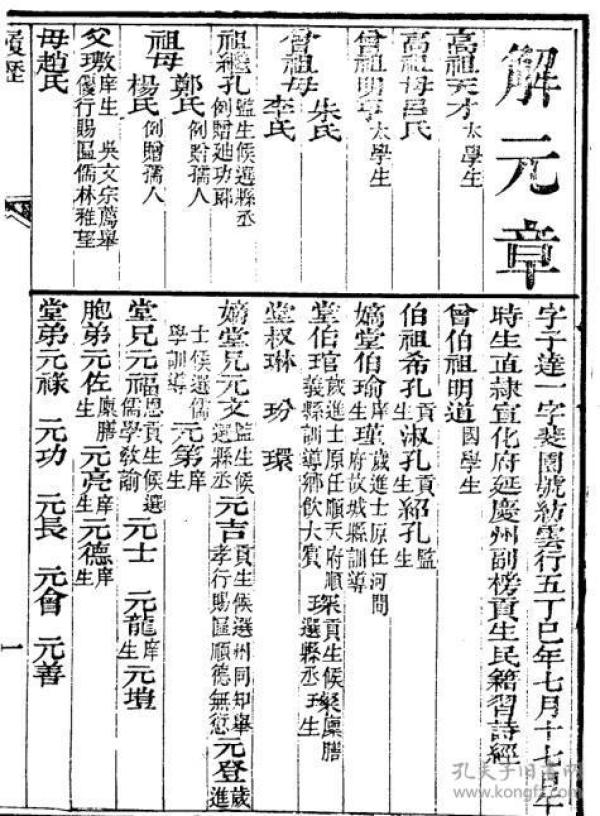 解元章
高祖天才太學生
高祖母呂氏
曾祖明亨太學生
曾祖母朱氏 李氏
祖繼孔監生候選縣丞例贈廸功郎
祖母鄭氏例貽孺人 楊氏例贈孺人
父璥庠生 吳文宗薦舉優行賜區儒林雅望
母趙氏
履歷
字子達一字斐園號紡雲行五丁巳年七月十七日午
時生直隷宣化府延慶州副榜貢生民籍習詩經
曾伯祖明道國學生
伯祖希孔貢生淑孔貢生紹孔監生
嫡堂伯瑜庠生瑾歲進士原任河間府故城縣訓導
堂伯琯歲進士原任順天府順義縣訓導鄉飲大賓 琛貢生候選縣丞
堂叔琳 玢 環
嫡堂兄元文監生候選縣丞 元吉貢生候選州同知舉孝行賜區順德無愆 元登歲進
士候選儒學訓導 元第庠生
堂兄元福恩貢生候選儒學敎諭 元士 元龍庠生 元塏
胞弟元佐廩膳生 元亮庠生元德庠生
堂弟元祿 元功 元長 元會 元善
一
孔夫子旧书网
www.kongfz.com